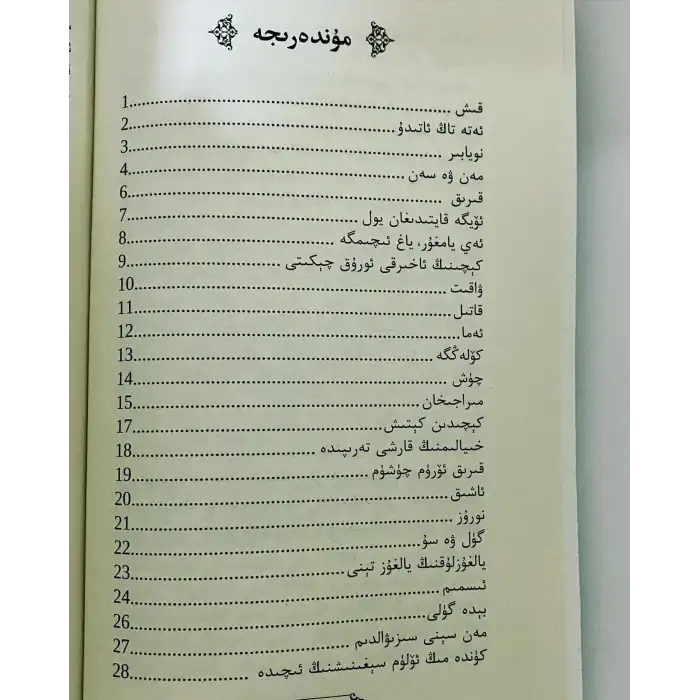 مۇندەرىجە
قىش ........................................ 1
ئەتە تاڭ ئاتىدۇ ........................................ 2
نويابىر ........................................ 3
مەن ۋە سەن ........................................ 4
قىرىق ........................................ 6
ئۆيگە قايتىدىغان يول ........................................ 7
ئەي يامغۇر، ياغ ئىچىمگە ........................................ 8
كېچىنىڭ ئاخىرقى ئورۇق چېكىتى ........................................ 9
ۋاقىت ........................................ 10
قاتىل ........................................ 11
ئەما ........................................ 12
كۆلەڭگە ........................................ 13
چۈش ........................................ 14
مىراجىخان ........................................ 15
كېچىدىن كېتىش ........................................ 17
خىيالىمنىڭ قارشى تەرىپىندە ........................................ 18
قىرىق ئۆرۈم چۈشۈم ........................................ 19
ئاشىق ........................................ 20
نورۇز ........................................ 21
گۈل ۋە سۇ ........................................ 22
يالغۇزلۇقنىڭ يالغۇز تېنى ........................................ 23
ئىسمىم ........................................ 24
بېدە گۈلى ........................................ 26
مەن سېنى سىزىۋالدىم ........................................ 27
كۈندە مىڭ ئۆلۈم سېغىنىشنىڭ ئىچىدە ........................................ 28